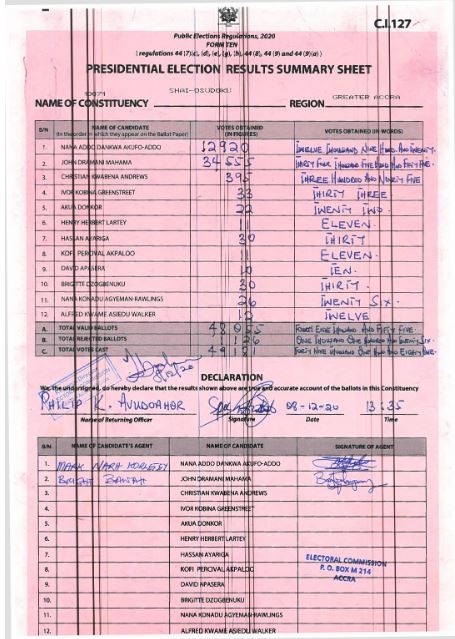 C.I.127
Public Elections Regulations, 2020
FORM TEN
( regulations 44 (7)(c), (d), (e), (g), (h), 44 (8), 44 (9) and 44 (9)(a) )
PRESIDENTIAL ELECTION RESULTS SUMMARY SHEET
NAME OF CONSTITUENCY SHAI-OSUDOKU REGION GREATER ACCRA
S/N NAME OF CANDIDATE (In the order in which they appear on the Ballot Paper) VOTES OBTAINED (IN FIGURES) VOTES OBTAINED (IN WORDS)
1. NANA ADDO DANKWA AKUFO-ADDO 12920 TWELVE THOUSAND NINE HUND. AND TWENTY.
2. JOHN DRAMANI MAHAMA 34555 THIRTY FOUR THOUSAND FIVE HUND AND FIFTY FIVE.
3. CHRISTIAN KWABENA ANDREWS 395 THREE HUNDRED AND NINETY FIVE
4. IVOR KOBINA GREENSTREET 33 THIRTY THREE
5. AKUA DONKOR 22 TWENTY TWO.
6. HENRY HERBERT LARTEY 11 ELEVEN.
7. HASSAN AYARIGA 30 THIRTY
8. KOFI PERCIVAL AKPALOO 11 ELEVEN.
9. DAVID APASERA 10 TEN.
10. BRIGITTE DZOGBENUKU 30 THIRTY.
11. NANA KONADU AGYEMAN-RAWLINGS 26 TWENTY SIX.
12. ALFRED KWAME ASIEDU WALKER 12 TWELVE
A. TOTAL VALID BALLOTS 48055 FORTY EIGHT THOUSAND AND FIFTY FIVE.
B. TOTAL REJECTED BALLOTS 1126 ONE THOUSAND ONE HUNDRED AND TWENTY SIX.
C. TOTAL VOTES CAST 49181 FORTY NINE THOUSAND ONE HUND AND EIGHTY ONE.
DECLARATION
We, the undersigned, do hereby declare that the results shown above are true and accurate account of the ballots in this Constituency
PHILIP K. 08-12-20 13:35
Name of Returning Officer Signature Date Time
S/N NAME OF CANDIDATE'S AGENT NAME OF CANDIDATE SIGNATURE OF AGENT
1. MARK NARH NANA ADDO DANKWA AKUFO-ADDO
2. BRIGHT JOHN DRAMANI MAHAMA
3. CHRISTIAN KWABENA ANDREWS
4. IVOR KOBINA GREENSTREET
5. AKUA DONKOR
6. HENRY HERBERT LARTEY
7. HASSAN AYARIGA
8. KOFI PERCIVAL AKPALOO
9. DAVID APASERA
10. BRIGITTE DZOGBENUKU
11. NANA KONADU AGYEMAN-RAWLINGS
12. ALFRED KWAME ASIEDU WALKER
ELECTORAL COMMISSION
P. O. BOX M 214
ACCRA